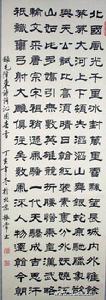 北國風光千里冰封萬里雪飄望長城內外惟餘莽
莽大河上下頓失滔滔山舞銀蛇原馳蠟象欲
與天公試比高須晴日看紅裝素裹分外妖
嬈江山如此多嬌引無數英雄競折腰惜秦皇漢
武略輸文采唐宗宋祖稍遜風騷一代天驕成吉思汗
祇識彎弓射大雕俱往矣數風流人物還看今朝
錄毛澤東詩詞沁園春雪 丁亥年冬於北京